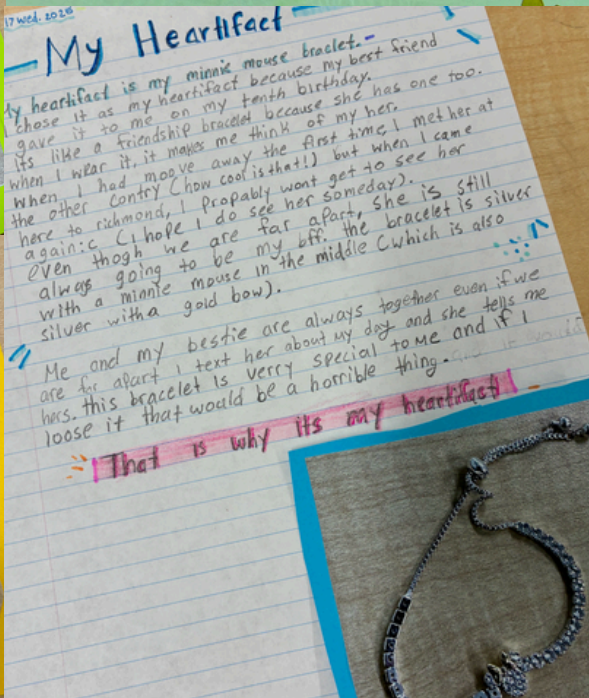 17 wed. 2026
My Heartifact
My heartifact is my minnie mouse braclet.-
I chose it as my heartifact because my best friend
gave it to me on my tenth birthday.
Its like a friendship bracelet because she has one too.
when I wear it, it makes me think of my her.
When I had moove away the first time, I met her at
the other contry (how cool is that!) but when I came
here to richmond, I propably wont get to see her
again:c (I hope I do see her someday).
even thogh we are far apart, she is still
always going to be my bff. the bracelet is silver
with a minnie mouse in the middle (which is also
silver with a gold bow).
Me and my bestie are always together even if we
are far apart I text her about my day and she tells me
hers. this bracelet is verry special to me and if I
loose it that would be a horrible thing.
That is why its my heartifact!